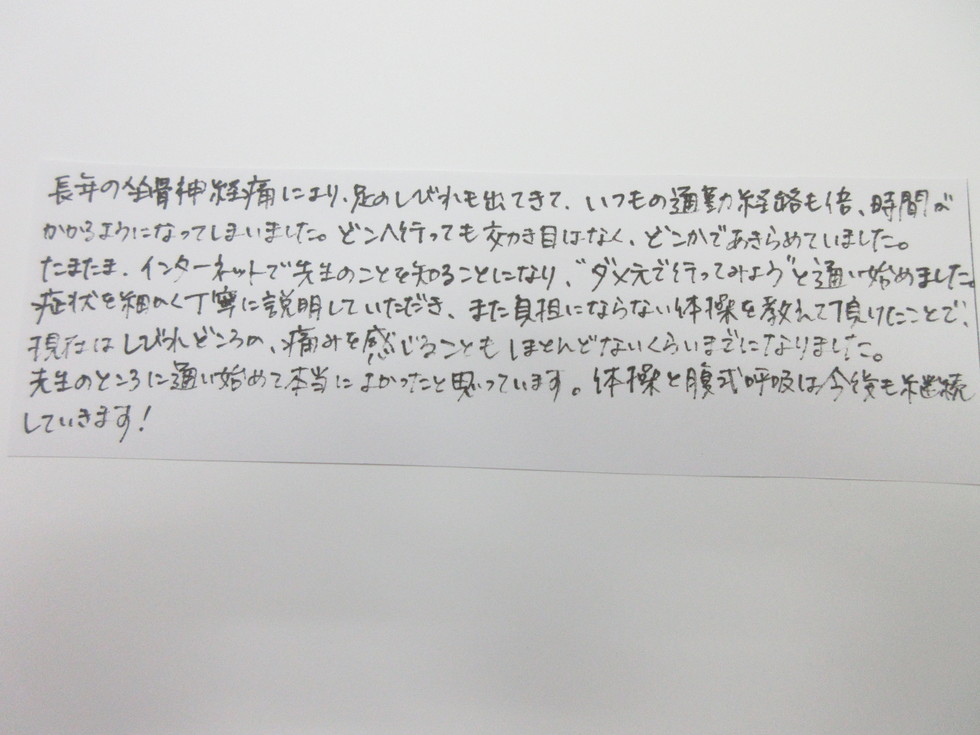 長年の坐骨神経痛により、足のしびれも出てきて、いつもの通勤経路も倍、時間が
かかるようになってしまいました。どこへ行っても効き目はなく、どこかであきらめていました。
たまたま、インターネットで先生のことを知ることになり、"ダメ元で行ってみよう"と通い始めました。
症状を細かく丁寧に説明していただき、また負担にならない体操を教えて頂けたことで、
現在はしびれどころか、痛みを感じることもほとんどないくらいまでになりました。
先生のところに通い始めて本当によかったと思っています。体操と腹式呼吸は今後も継続
していきます!